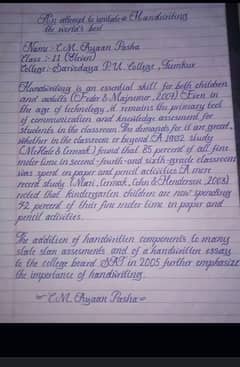 An attempt to imitate Handwriting
the world's best
Name :- C.M. Ayaan Pasha
Class :- 11 (Eleven)
College :- Sarvodaya P.U. College, Tumkur
Handwriting is an essential skill for both children
and adults (Feder & Majnemer, 2007) Even in
the age of technology, it remains the primary tool
of communication and knowledge assesment for
students in the classroom. The demands for it are great,
whether in the classroom or beyond. A 1992 study
(McHale & Cermak) found that 85 percent of all fine
motor time in second-fourth-and sixth-grade classroom
was spent on paper and pencil activities. A more
recent study (Marr, Cermak, Cohn & Henderson, 2003)
noted that kindergarten children are now spending
42 percent of their fine motor time on paper and
pencil activities.
The addition of handwritten components to many
state assesments and of a handwritten essay
to the college board SAT in 2005 further emphasize
the importance of handwriting.
C.M. Ayaan Pasha